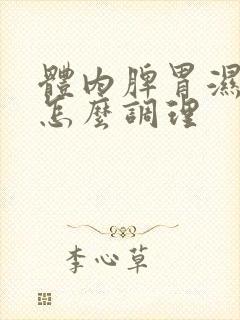 體內脾胃濕
怎麼調理
李心草